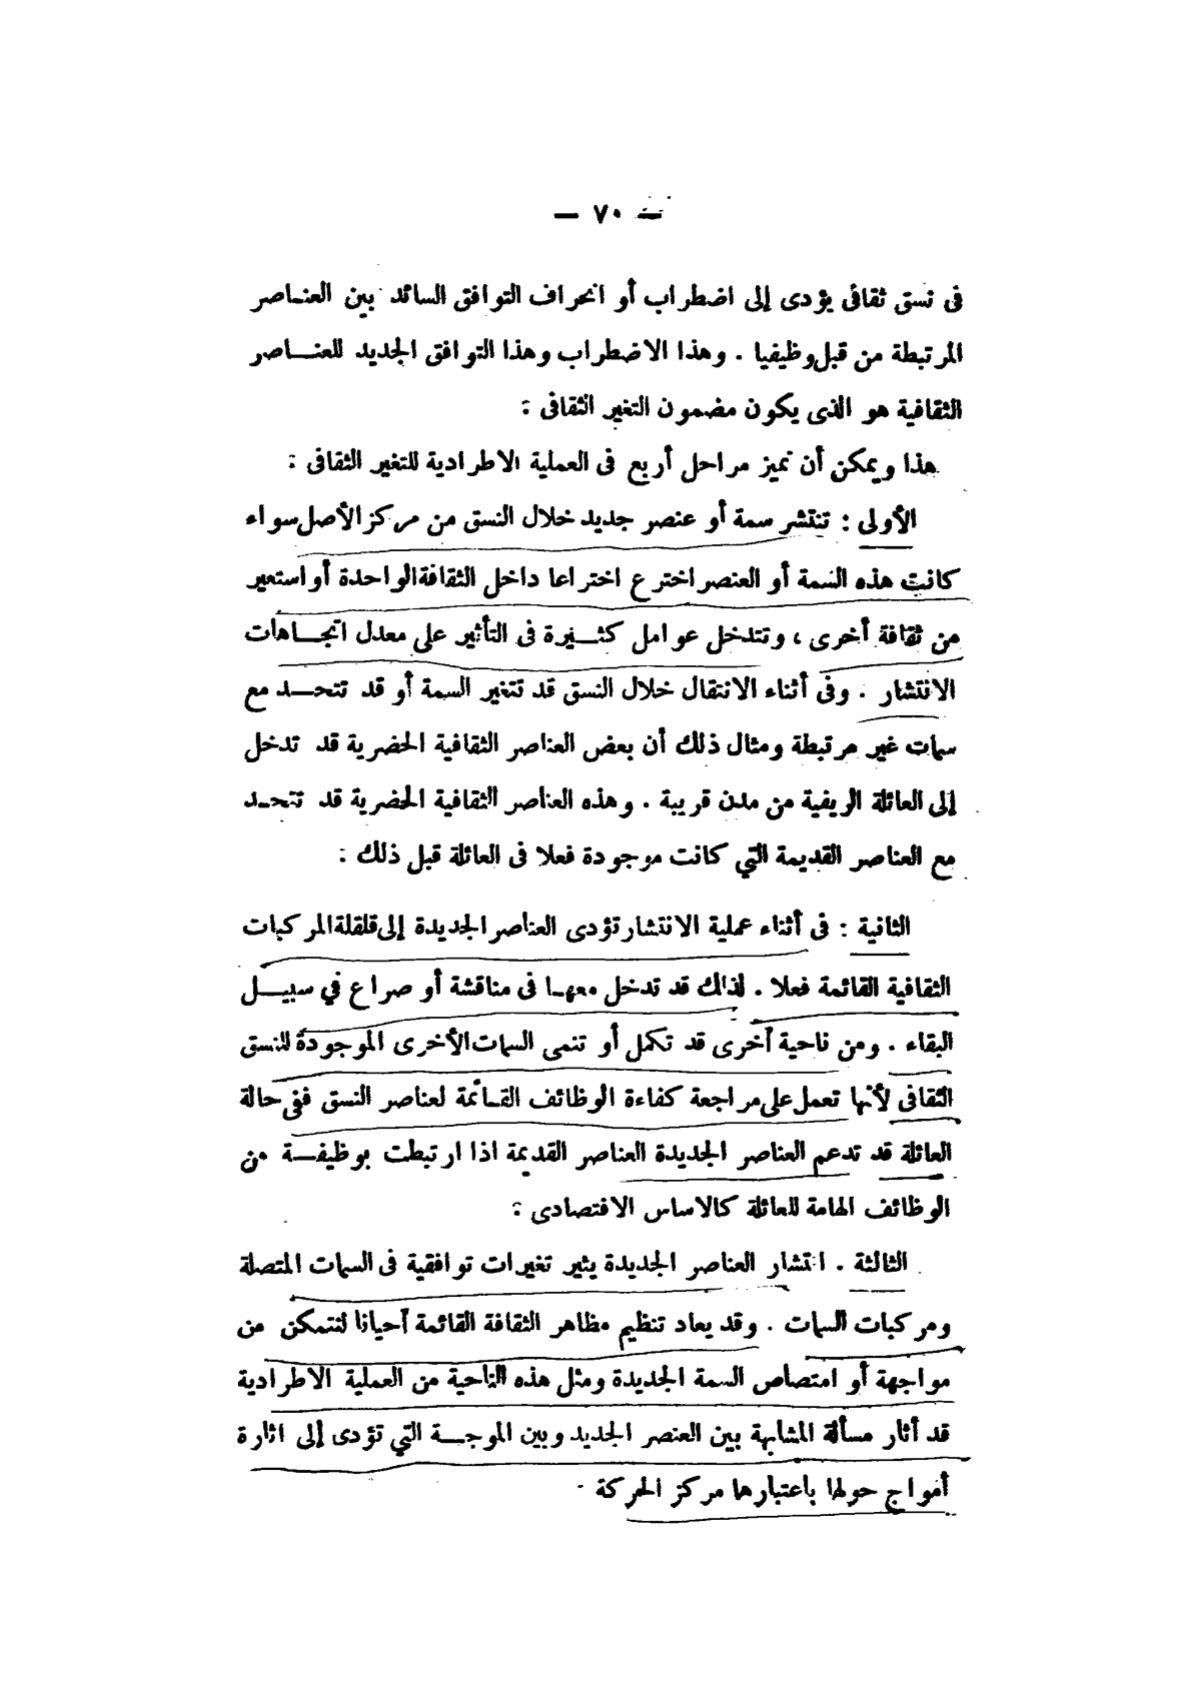 — ٧٠ —
فى نسق ثقافى يؤدى إلى اضطراب أو انحراف التوافق السائد بين العناصر
المرتبطة من قبل وظيفيا . وهذا الاضطراب وهذا التوافق الجديد للعناصر
الثقافية هو الذى يكون مضمون التغير الثقافى :
هذا ويمكن أن نميز مراحل أربع فى العملية الاطرادية للتغير الثقافى :
الأولى : تنتشر سمة أو عنصر جديد خلال النسق من مركز الأصل سواء
كانت هذه السمة أو العنصر اخترع اختراعا داخل الثقافة الواحدة أو استعير
من ثقافة أخرى ، وتتدخل عوامل كثيرة فى التأثير على معدل اتجاهات
الانتشار . وفى أثناء الانتقال خلال النسق قد تتغير السمة أو قد تتحد مع
سمات غير مرتبطة ومثال ذلك أن بعض العناصر الثقافية الحضرية قد تدخل
إلى العائلة الريفية من مدن قريبة . وهذه العناصر الثقافية الحضرية قد تتحد
مع العناصر القديمة التي كانت موجودة فعلا فى العائلة قبل ذلك :
الثانية : فى أثناء عملية الانتشار تؤدى العناصر الجديدة إلى قلقلة المركبات
الثقافية القائمة فعلا . لذلك قد تدخل معها فى مناقشة أو صراع في سبيل
البقاء . ومن ناحية أخرى قد تكمل أو تنمى السمات الأخرى الموجودة للنسق
الثقافى لأنها تعمل على مراجعة كفاءة الوظائف القائمة لعناصر النسق ففى حالة
العائلة قد تدعم العناصر الجديدة العناصر القديمة اذا ارتبطت بوظيفة من
الوظائف الهامة للعائلة كالاساس الاقتصادى :
الثالثة . انتشار العناصر الجديدة يثير تغيرات توافقية فى السمات المتصلة
ومركبات السمات . وقد يعاد تنظيم مظاهر الثقافة القائمة أحيانا لتتمكن من
مواجهة أو امتصاص السمة الجديدة ومثل هذه الناحية من العملية الاطرادية
قد أثار مسألة المشابهة بين العنصر الجديد وبين الموجة التي تؤدى إلى اثارة
أمواج حولها باعتبارها مركز الحركة .